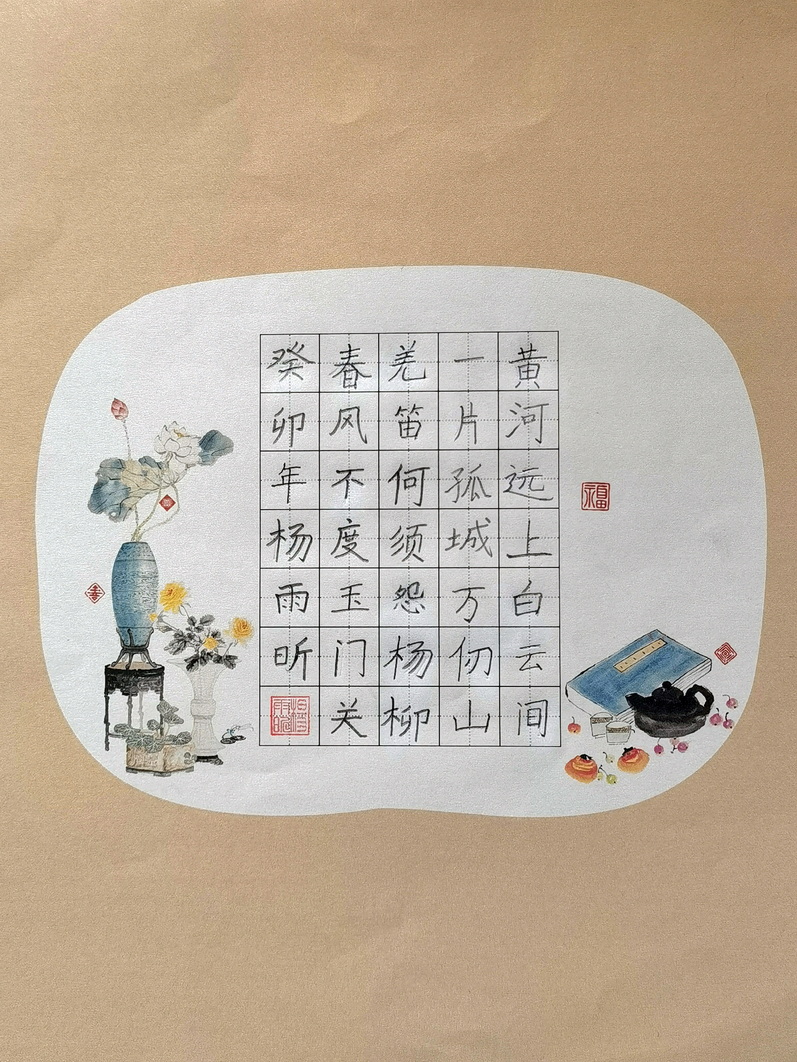 黄河远上白云间
一片孤城万仞山
羌笛何须怨杨柳
春风不度玉门关
癸卯年杨雨昕
福